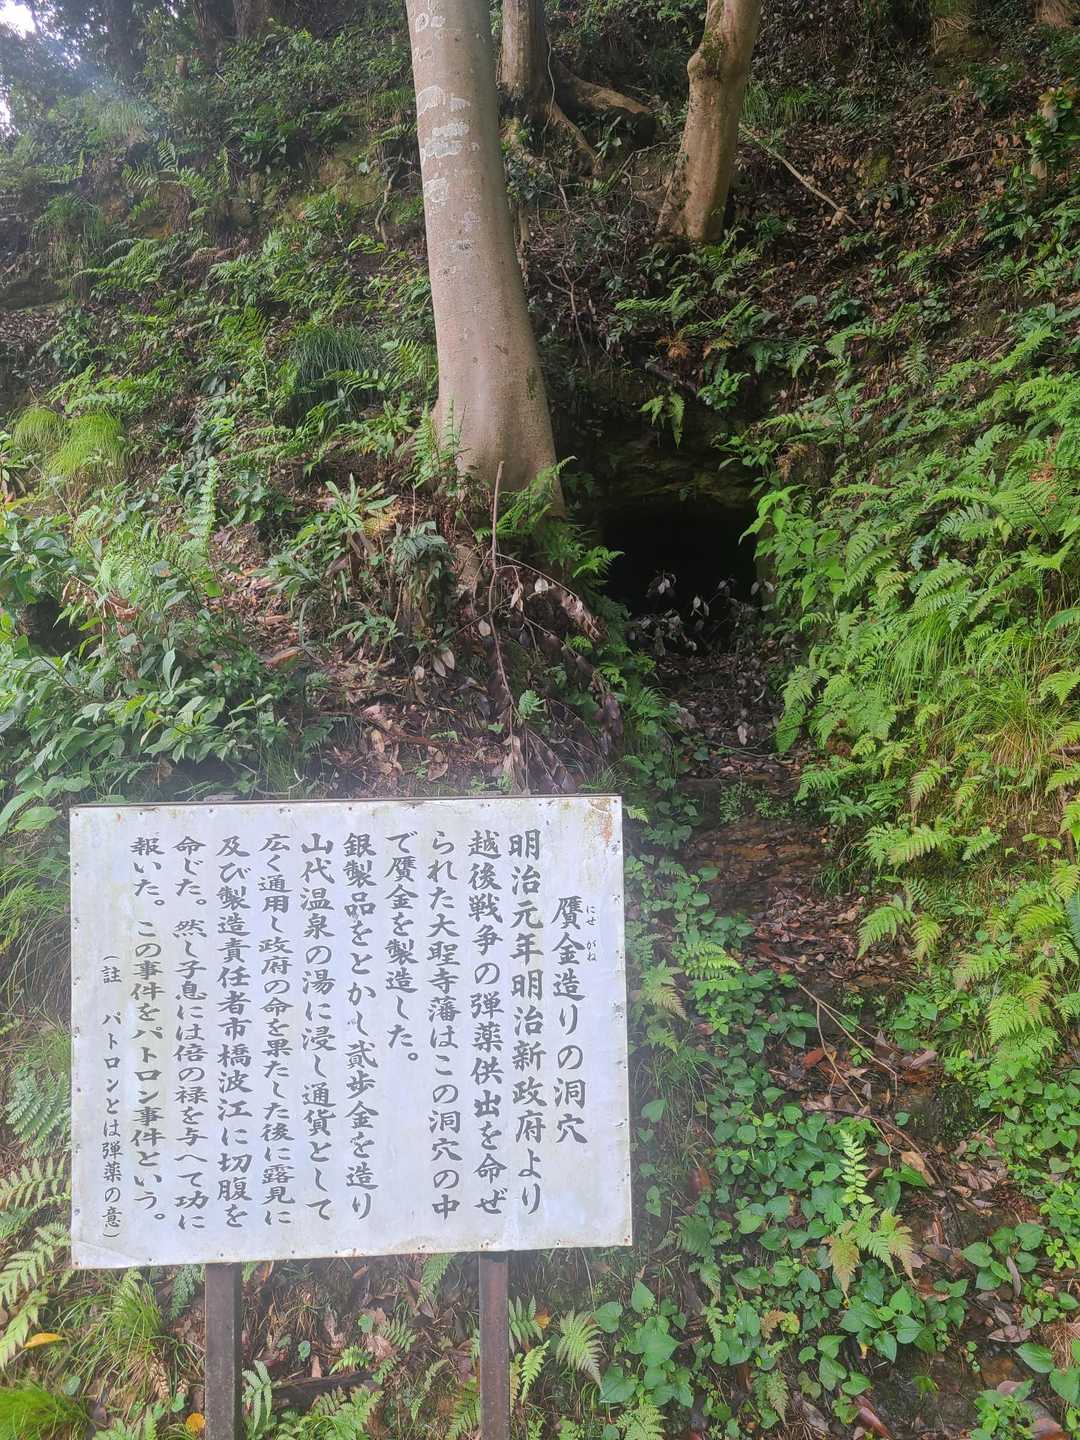 贋金造りの洞穴
にせ がね
明治元年明治新政府より
越後戦争の弾薬供出を命ぜ
られた大聖寺藩はこの洞穴の中
で贋金を製造した。
銀製品をとかし貮歩金を造り
山代温泉の湯に浸し通貨として
広く通用し政府の命を果たした後に露見に
及び製造責任者市橋波江に切腹を
命じた。然し子息には倍の禄を与へて功に
報いた。この事件をパトロン事件という。
(註 パトロンとは弾薬の意)